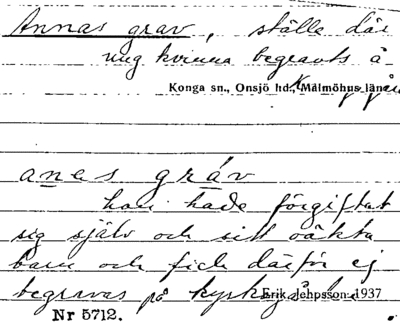 Annas grav, ställe där
ung kvinna begravts å
Konga sn., Onsjö hd., Malmöhus län
anes gráv
hon hade förgiftat
sig själv och sitt oäkta
barn och fick därför ej
begravas på kyrkog
Erik Jehpsson 1937
Nr 5712.